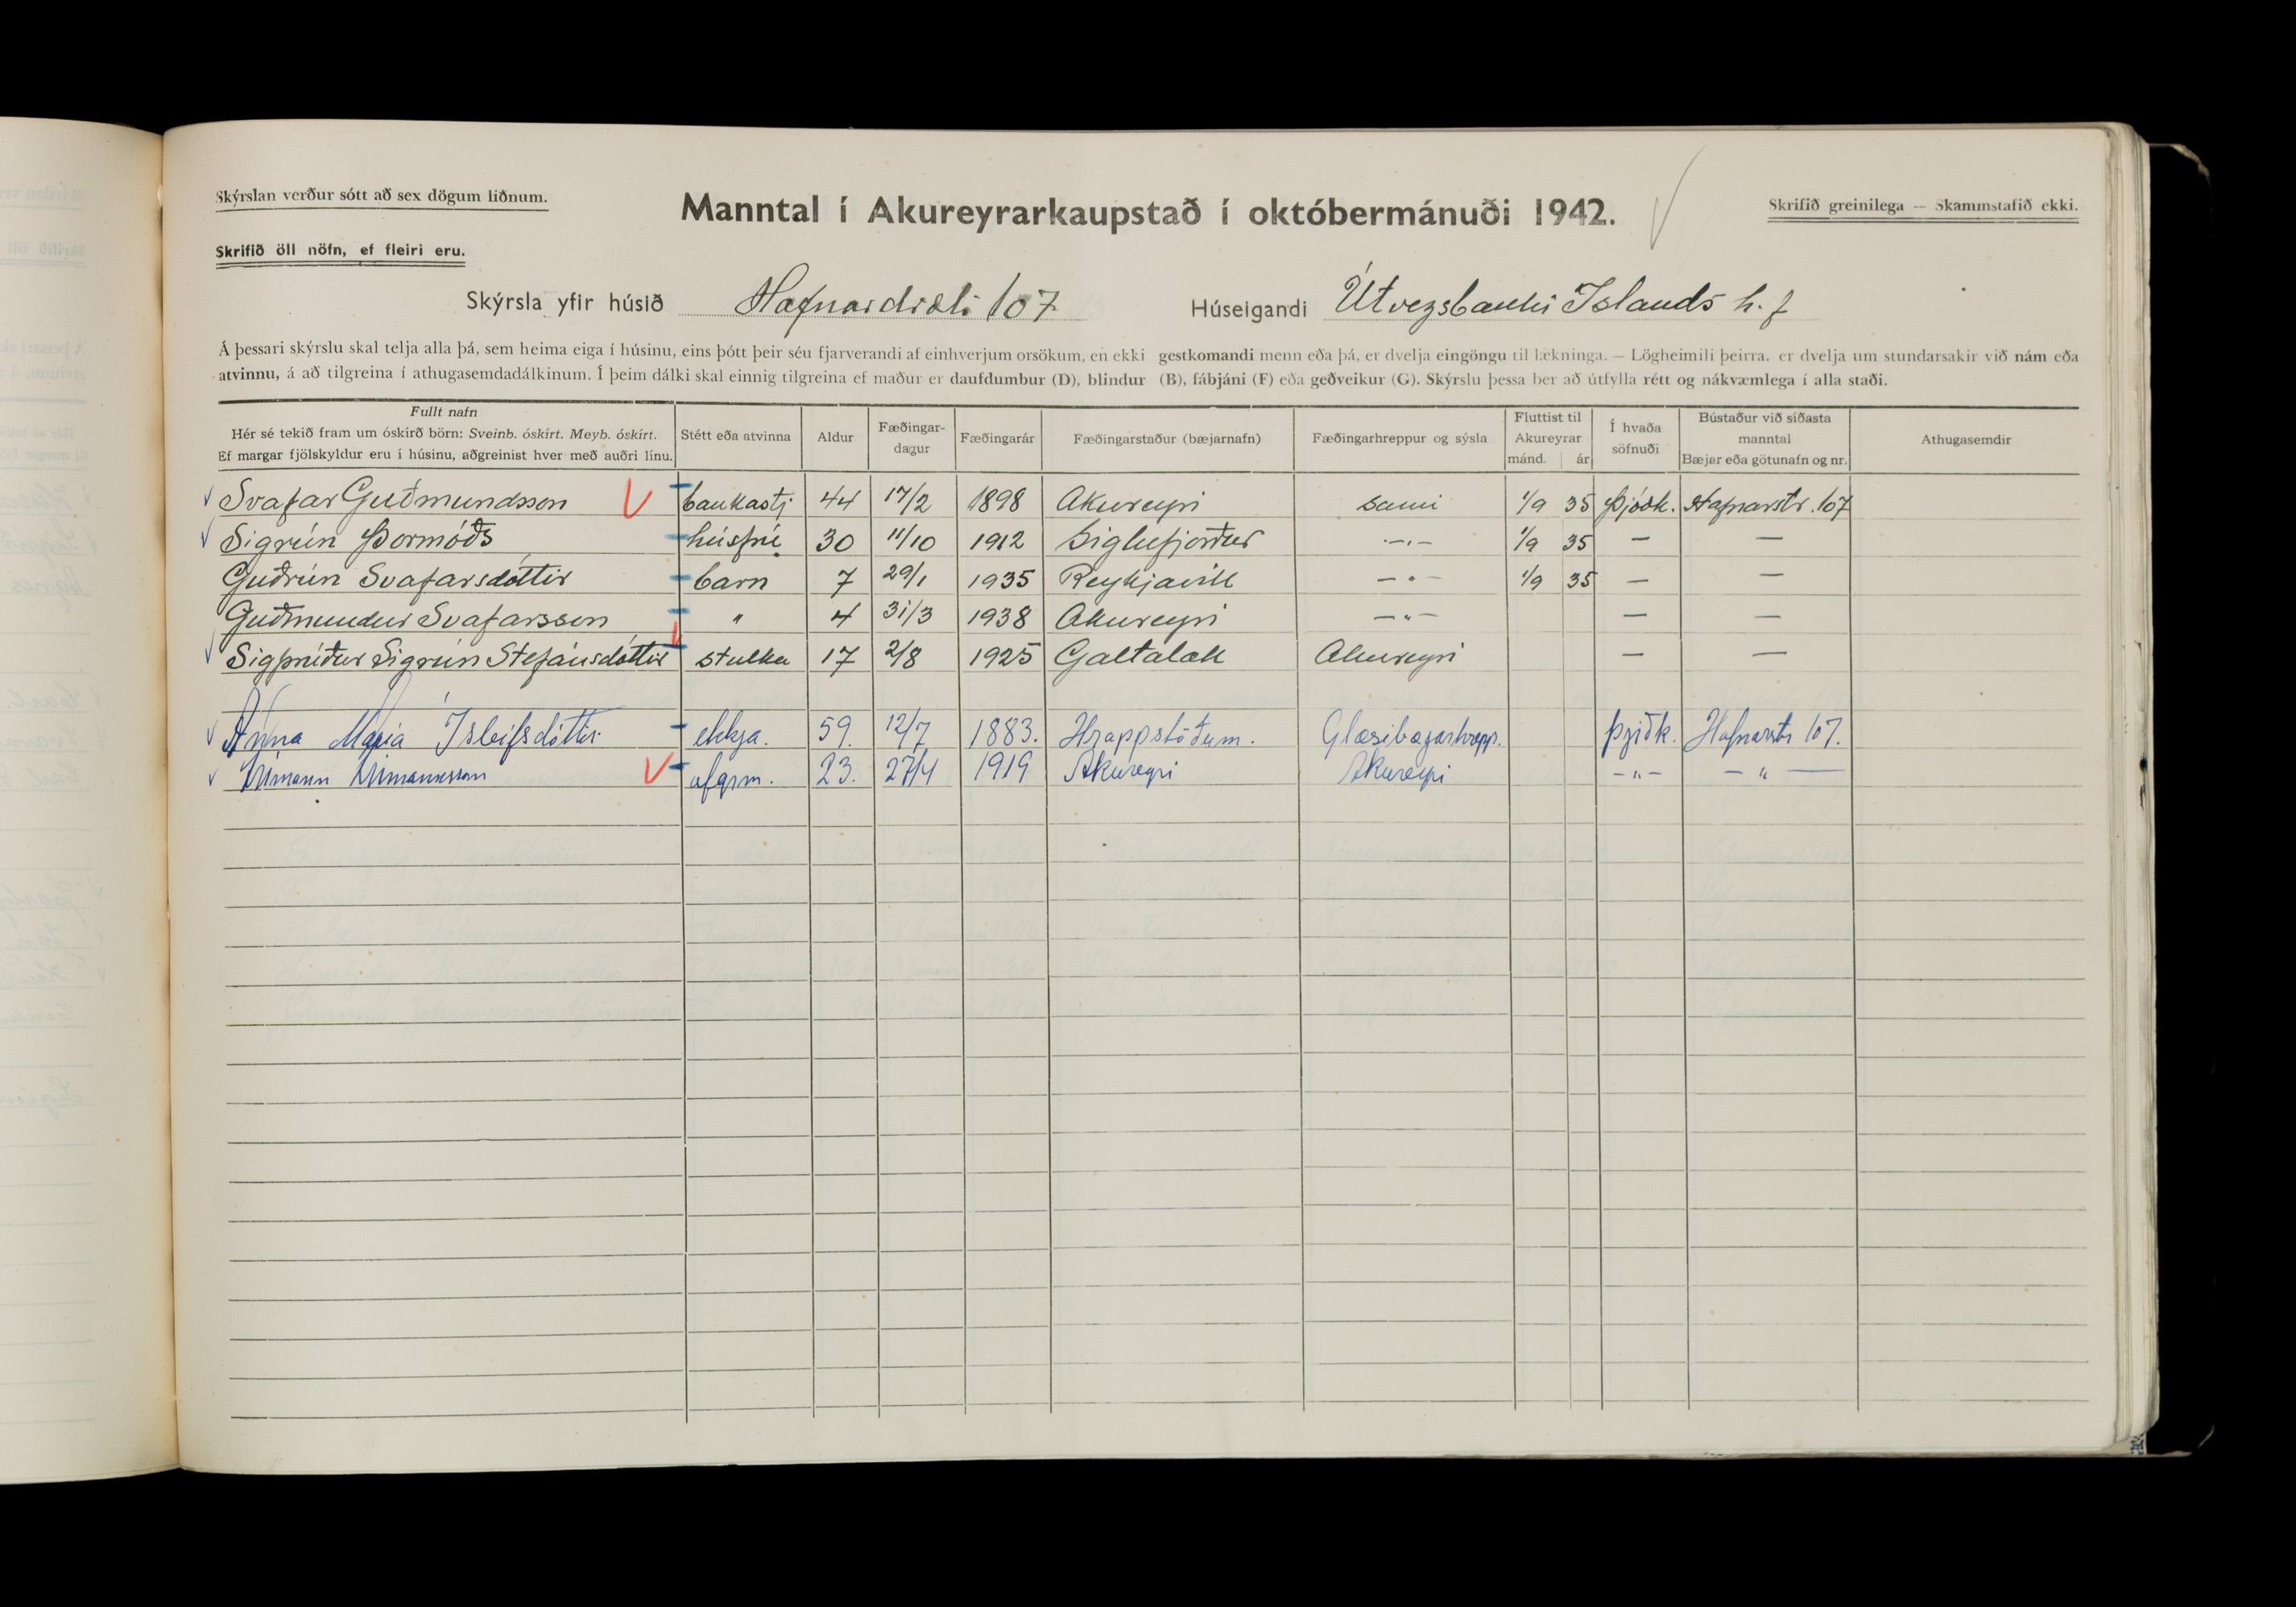 Skýrslan verður sótt að sex dögum liðnum.
Manntal í Akureyrarkaupstað í októbermánuði 1942.
Skrifið greinilega — Skammstafið ekki.
Skrifið öll nöfn, ef fleiri eru.
Skýrsla yfir húsið Hafnarstræti 107 Húseigandi Útvegsbanki Íslands h.f
Á þessari skýrslu skal telja alla þá, sem heima eiga í húsinu, eins þótt þeir séu fjarverandi af einhverjum orsökum, en ekki gestkomandi menn eða þá, er dvelja eingöngu til lækninga. — Lögheimili þeirra, er dvelja um stundarsakir við nám eða
atvinnu, á að tilgreina í athugasemdadálkinum. Í þeim dálki skal einnig tilgreina ef maður er daufdumbur (D), blindur (B), fábjáni (F) eða geðveikur (G). Skýrslu þessa ber að útfylla rétt og nákvæmlega í alla staði.
Fullt nafn
Hér sé tekið fram um óskírð börn: Sveinb. óskírt. Meyb. óskírt.
Ef margar fjölskyldur eru í húsinu, aðgreinist hver með auðri línu.
Stétt eða atvinna
Aldur
Fæðingar-
dagur
Fæðingarár
Fæðingarstaður (bæjarnafn)
Fæðingarhreppur og sýsla
Fluttist til
Akureyrar
mánd. ár
Í hvaða
söfnuði
Bústaður við síðasta
manntal
Bæjar eða götunafn og nr.
Athugasemdir
Svafar Guðmundsson bankastj 44 17/2 1898 Akureyri sami 1/9 35 Þjóðk. Hafnarstr. 107
Sigrún Þormóðs húsfrú 30 11/10 1912 Siglufjörður -"- 1/9 35 — —
Guðrún Svafarsdóttir barn 7 29/1 1935 Reykjavík -"- 1/9 35 — —
Guðmundur Svafarsson " 4 31/3 1938 Akureyri -"- — —
Sigþrúður Sigrún Stefánsdóttir stulka 17 2/8 1925 Galtalæk Akureyri — —
Anna María Ísleifsdóttir ekkja. 59. 12/7 1883. Hrappstöðum. Glæsibæjarhrepp. Þjóðk. Hafnarstr 107.
afgrm. 23. 27/4 1919 Akureyri Akureyri -"- -"-